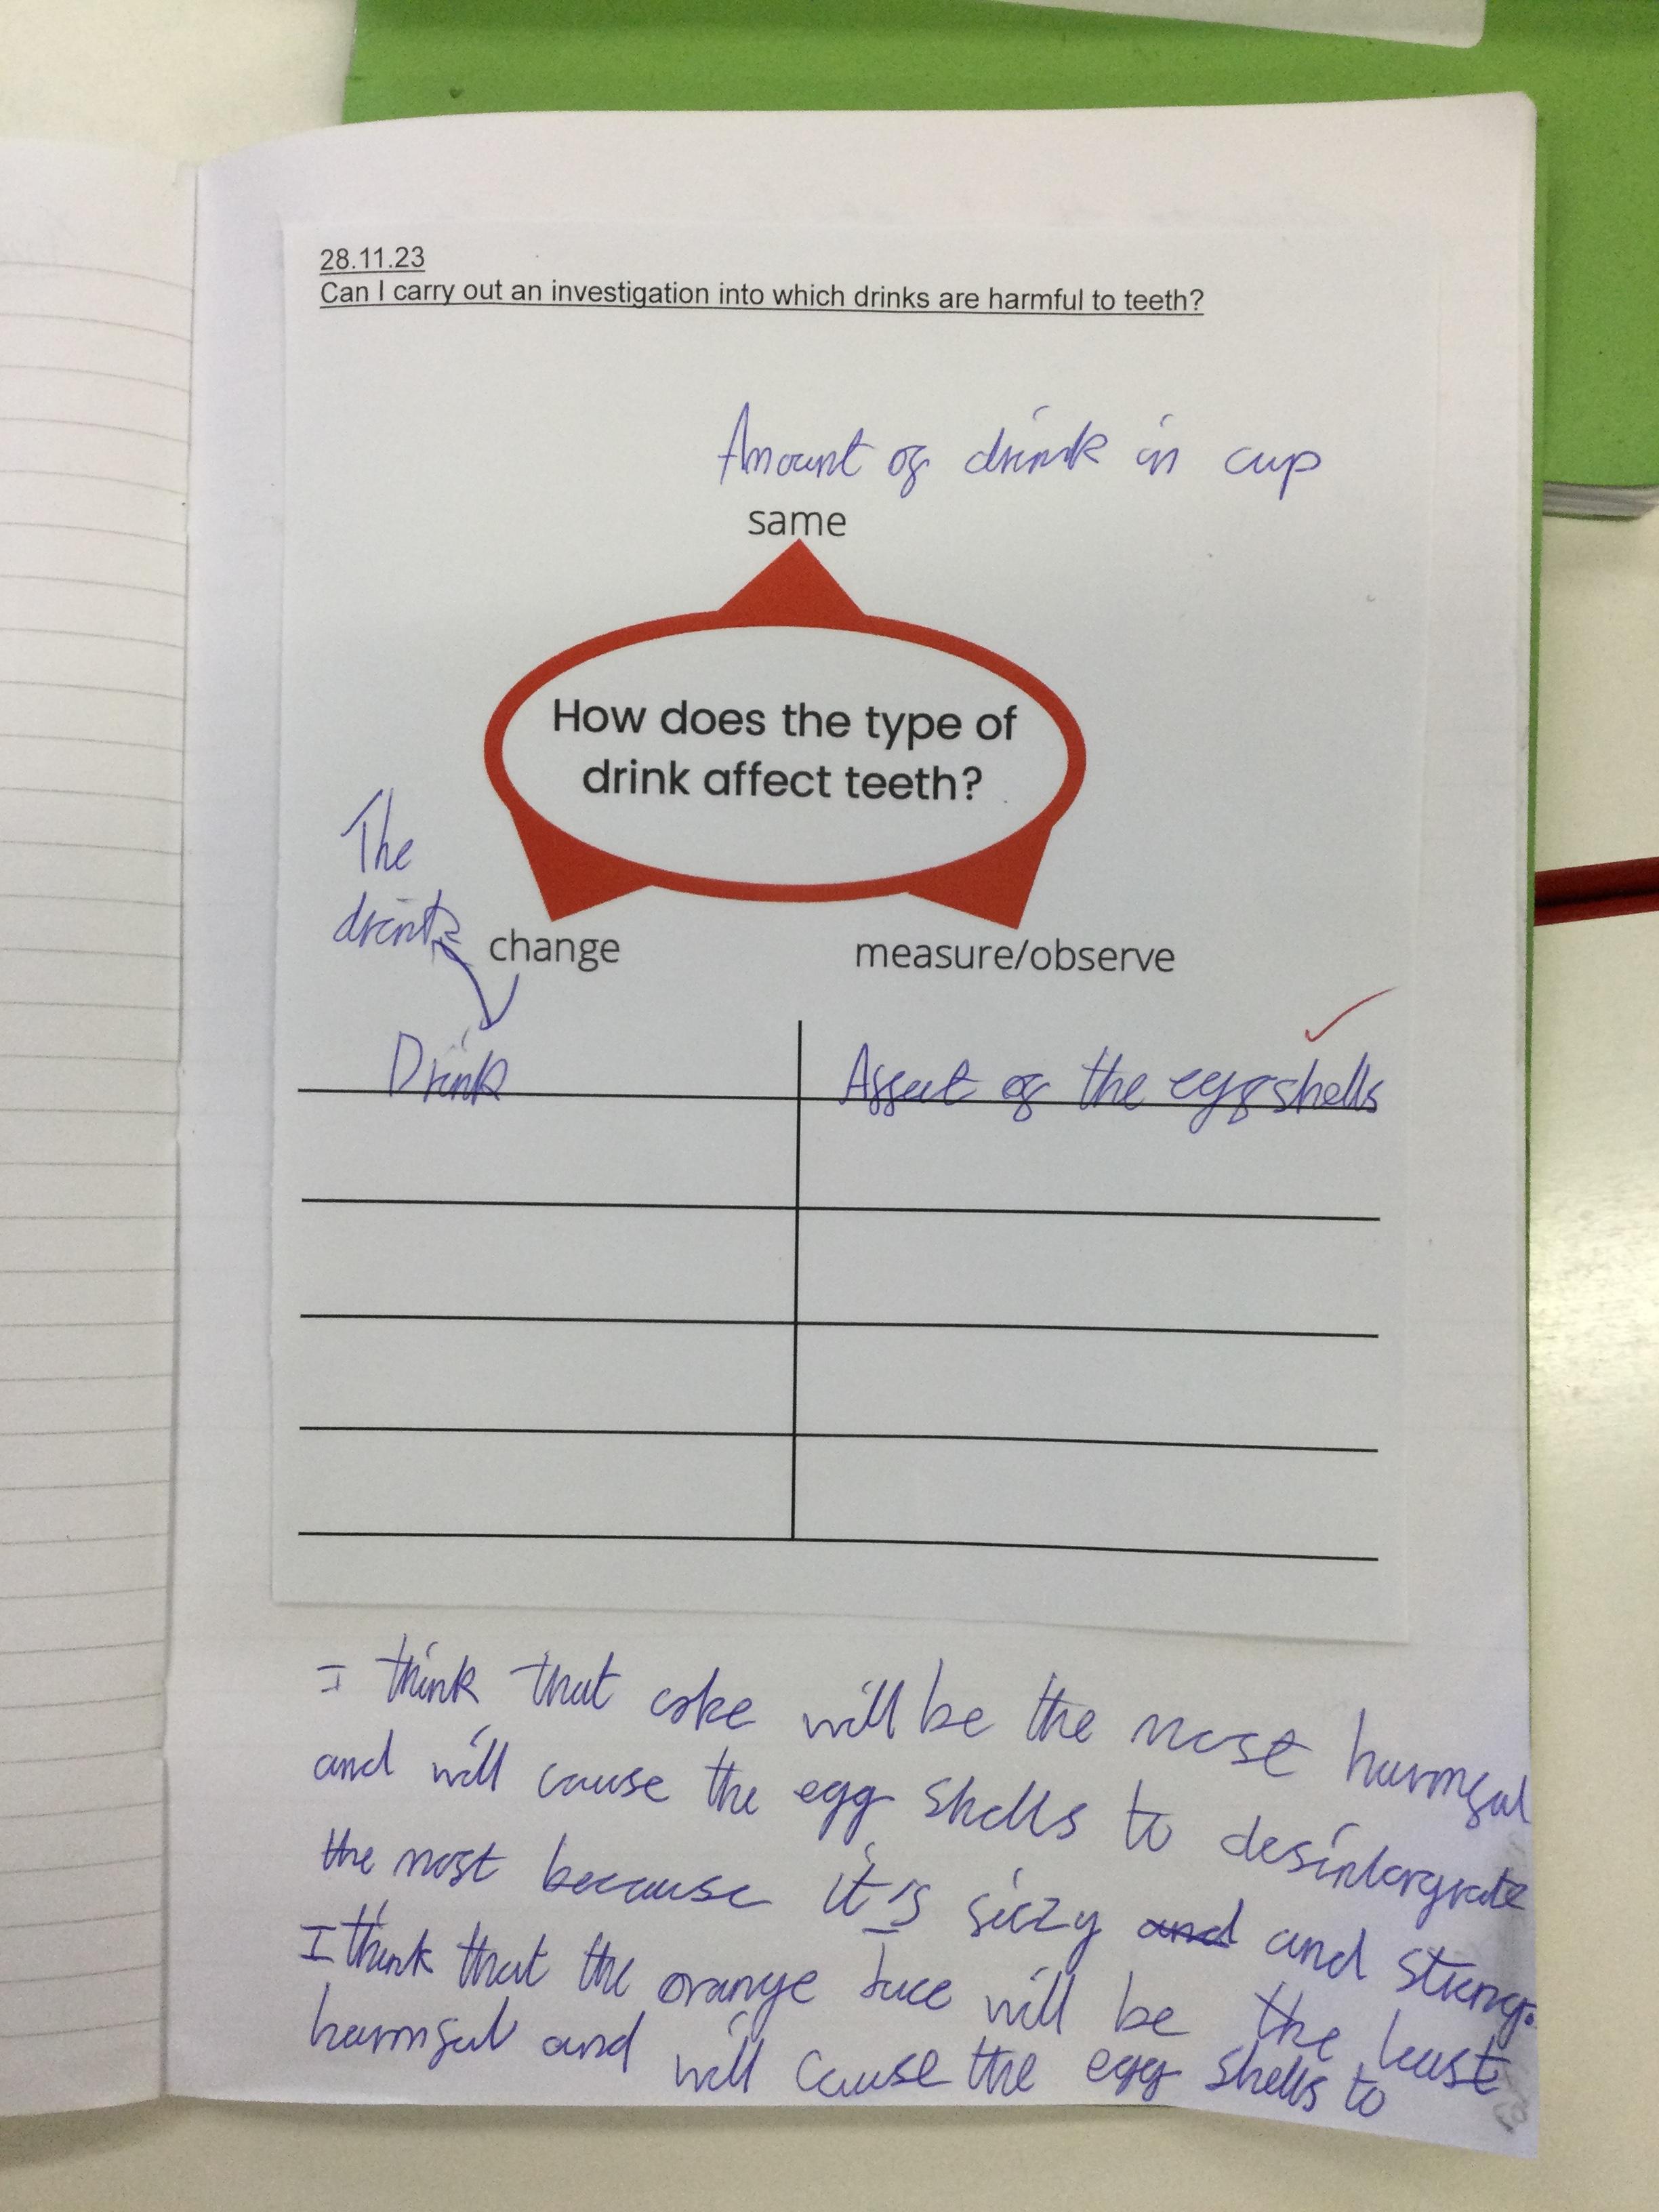 28.11.23
Can I carry out an investigation into which drinks are harmful to teeth?
Amount of drink in cup
same
How does the type of
drink affect teeth?
The
drink
change
measure/observe
Drink
Affect of the eggshells
I think that coke will be the most harmful
and will cause the egg shells to desintorgrate
the most because it's fizzy and and strong.
I think that the orange juce will be the least
harmful and will cause the egg shells to